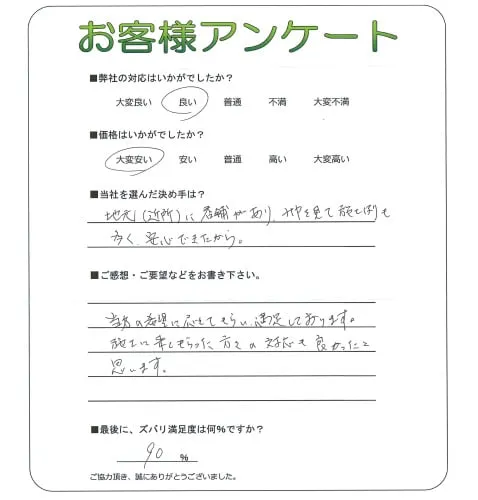 お客様アンケート
■弊社の対応はいかがでしたか？
大変良い 良い 普通 不満 大変不満
■価格はいかがでしたか？
大変安い 安い 普通 高い 大変高い
■当社を選んだ決め手は？
地元(近所)に店舗があり、HPを見て施工例も
多く、安心できたから。
■ご感想・ご要望などをお書き下さい。
当方の希望に応えてもらい、満足しております。
施工に来てもらった方々の対応も良かったと
思います。
■最後に、ズバリ満足度は何％ですか？
90 %
ご協力頂き、誠にありがとうございました。